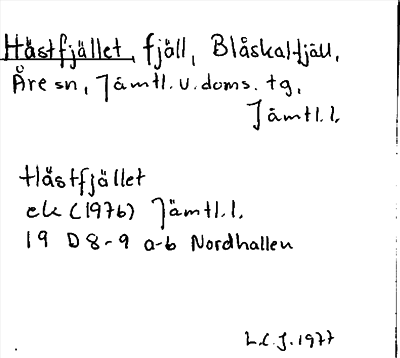 Håstfjället, fjäll, Blåskalfjäll,
Åre sn, Jämtl. v. doms. tg,
Jämtl. l.
Håstfjället
ek (1976) Jämtl. l.
19 D 8-9 a-b Nordhallen
L.C.J. 1977